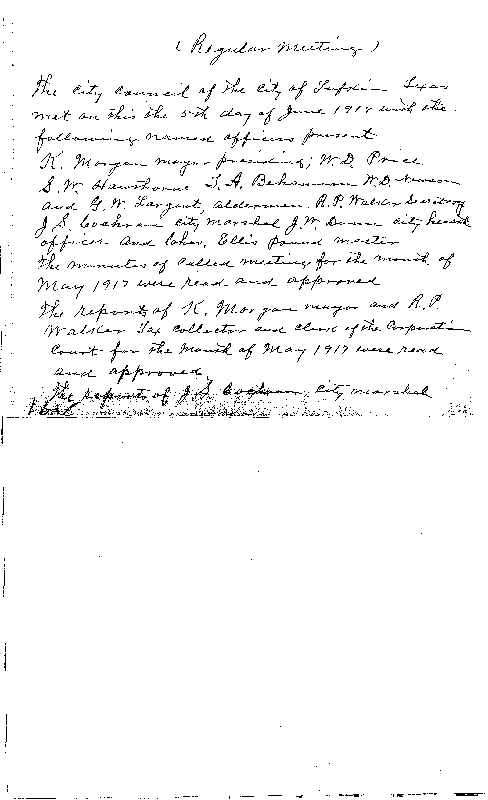 (Regular Meeting)
The City Council of the City of Lufkin Texas
met on this the 5th day of June 1917 with the
following named officers present
K. Morgan mayor presiding; W.D. Price
S.W. Hawthorne T.A. Behannon W.D. Newsom
and G.W. Largent, aldermen. R.P. Walker Secretary
J.S. Cochran City marshal J.W. Dunn City health
officer and Ellis pound master
The minutes of called meeting for the month of
May 1917 were read and approved
The reports of K. Morgan mayor and R.P.
Walker Tax Collector and clerk of the Corporation
Court for the Month of May 1917 were read
and approved.
The reports of J.S. Cochran, City marshal